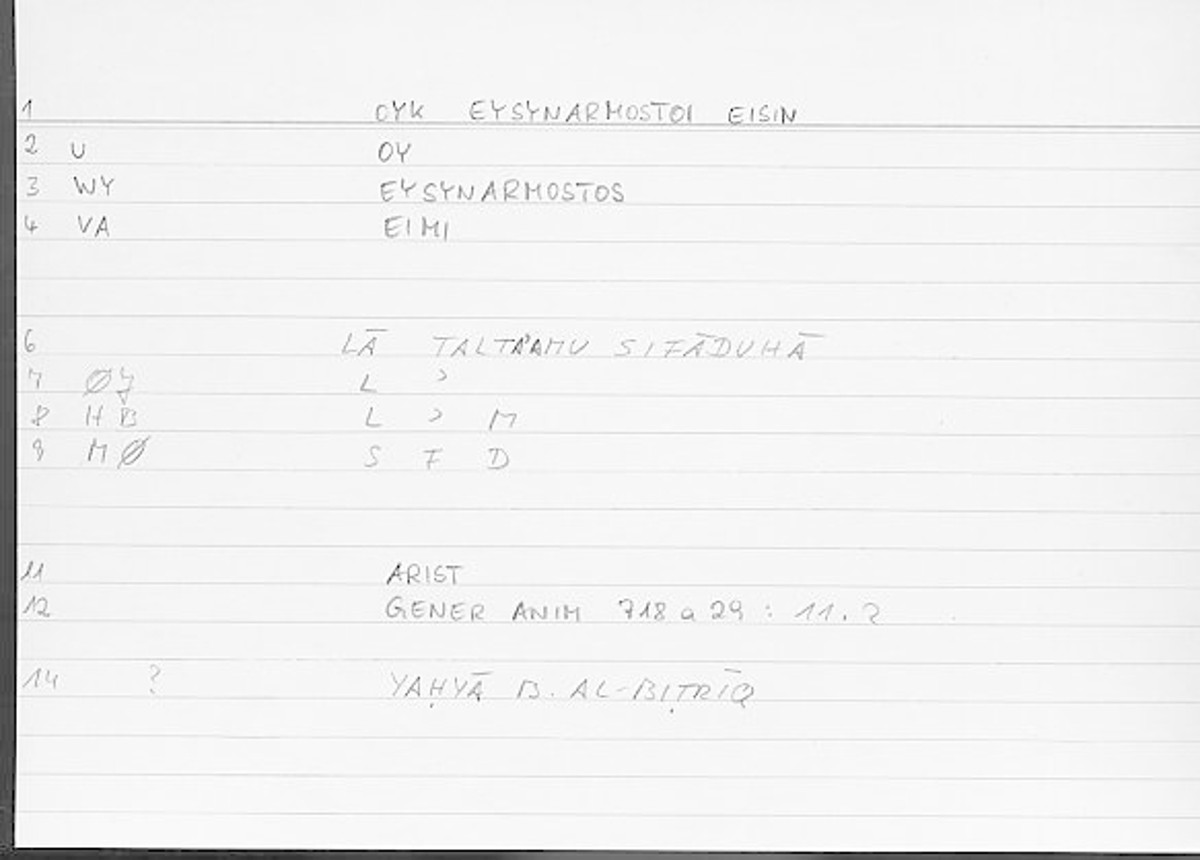 1 OYK EYSYNARMOSTOI EISIN
2 U OY
3 WY EYSYNARMOSTOS
4 VA EIMI
6 LĀ TALTAʾAMU SIFĀDUHĀ
7 ØJ L ʾ
8 HB L ʾ M
9 MØ S F D
11 ARIST
12 GENER ANIM 718 a 29 : 11.2
14 ? YAḤYĀ B. AL-BIṬRĪQ